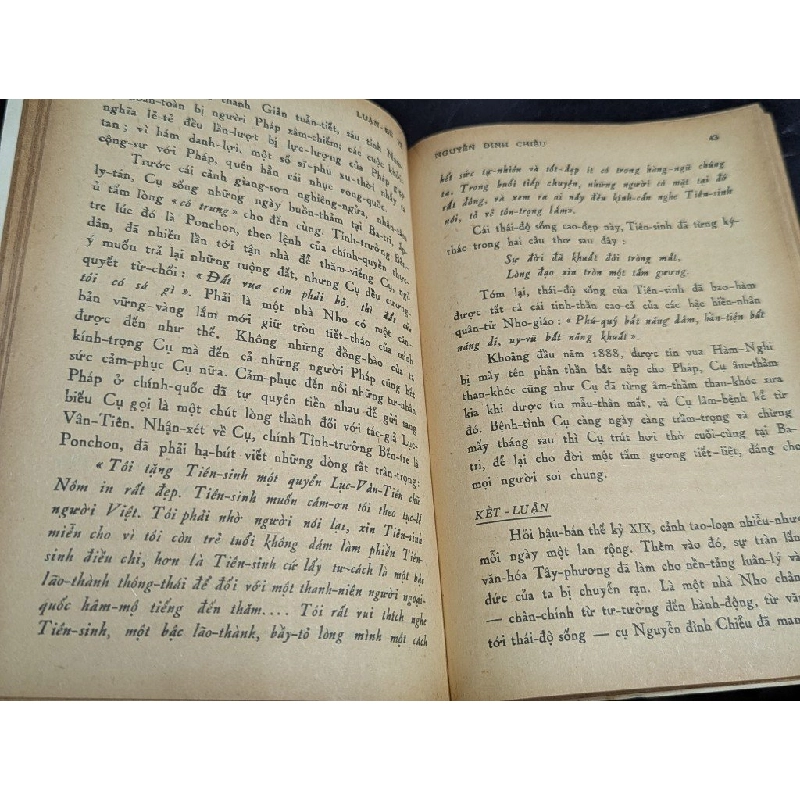 LUẬN-ĐỀ
thanh Giản tuẫn-tiết, sáu tỉnh
toàn bị người Pháp xâm-chiếm; các cuộc
nghĩa lẻ-tẻ đều lần-lượt bị lực-lượng của Pháp
tan; vì hám danh-lợi, một số sĩ-phu xu-thời
cộng-sự với Pháp, quên hẳn cái nhục vong-quốc.
Trước cái cảnh giang-sơn nghiêng-ngửa, nhân-tâm
ly-tán, Cụ sống những ngày buồn-thảm tại Ba-tri, ấp-
ủ tấm lòng «có trung» cho đến cùng. Tỉnh-trưởng Bến-
tre lúc đó là Ponchon, theo lệnh của chính-quyền thực-
dân, đã nhiều lần tới tận nhà để thăm-viếng Cụ, ngỏ
ý muốn trả lại những ruộng đất, nhưng Cụ đều cương-
quyết từ-chối: «Đất vua còn phải bỏ, tôi đất của
tôi có sá gì». Phải là một nhà Nho có một căn-
bản vững-vàng lắm mới giữ tròn tiết-tháo của mình
được đến như thế. Không những đồng-bào của ta
kính-trọng Cụ mà đến cả những người Pháp cũng hết
sức cảm-phục Cụ nữa. Cảm-phục đến nỗi những tư-nhân
Pháp ở chính-quốc đã tự quyên tiền nhau để gửi sang
biếu Cụ gọi là một chút lòng thành đối với tác-giả Lục-
Vân-Tiên. Nhận-xét về Cụ, chính Tỉnh-trưởng Bến-tre là
Ponchon, đã phải hạ-bút viết những dòng rất trân-trọng:
« Tôi tặng Tiên-sinh một quyển Lục-Vân-Tiên chữ
Nôm in rất đẹp. Tiên-sinh muốn cám-ơn tôi theo tục-lệ
người Việt. Tôi phải nhờ người nói lại, xin Tiên-sinh
miễn cho vì tôi còn trẻ tuổi không dám làm phiền Tiên-
sinh điều chi, hơn là Tiên-sinh cứ lấy tư-cách là một bậc
lão-thành thông-thái để đối với một thanh-niên người ngoại-
quốc hâm-mộ tiếng đến thăm.... Tôi rất vui thích nghe
Tiên-sinh, một bậc lão-thành, bầy-tỏ lòng mình một cách
NGUYỄN ĐÌNH CHIỂU
hết sức tự-nhiên và tốt-đẹp ít có trong hàng-ngũ chúng
ta. Trong buổi tiếp chuyện, những người có mặt tại đó
rất đông, và xem ra ai nấy đều kính-cẩn nghe Tiên-sinh
nói, tỏ vẻ tôn-trọng lắm».
Cái thái-độ sống cao-đẹp này, Tiên-sinh đã từng ký-
thác trong hai câu thơ sau đây :
Sự đời đã khuất đôi tròng mắt,
Lòng đạo xin tròn một tấm gương.
Tóm lại, thái-độ sống của Tiên-sinh đã bao-hàm
được tất cả cái tinh-thần cao-cả của các bậc hiền-nhân
quân-tử Nho-giáo: « Phú-quý bất năng dâm, bần-tiện bất
năng di, uy-vũ bất năng khuất».
Khoảng đầu năm 1888, được tin vua Hàm-Nghi
bị mấy tên phản thần bắt nộp cho Pháp, Cụ âm-thầm
than-khóc cũng như Cụ đã từng âm-thầm than-khóc xưa
kia khi được tin mẫu-thân mất, và Cụ lâm-bệnh kể từ
đó. Bệnh-tình Cụ càng ngày càng trầm-trọng và chừng
mấy tháng sau thì Cụ trút hơi thở cuối-cùng tại Ba-
tri, để lại cho đời một tấm gương tiết-liệt, đáng cho
mọi người soi chung.
KẾT-LUẬN
Hồi hậu-bán thế kỷ XIX, cảnh tao-loạn nhiễu-nhương
mỗi ngày một lan rộng. Thêm vào đó, sự tràn lấn
văn-hóa Tây-phương đã làm cho nền-tảng luân-lý và
đức của ta bị chuyển rạn. Là một nhà Nho chân-
— chân-chính từ tư-tưởng đến hành-động, từ văn
tới thái-độ sống — cụ Nguyễn đình Chiểu đã man